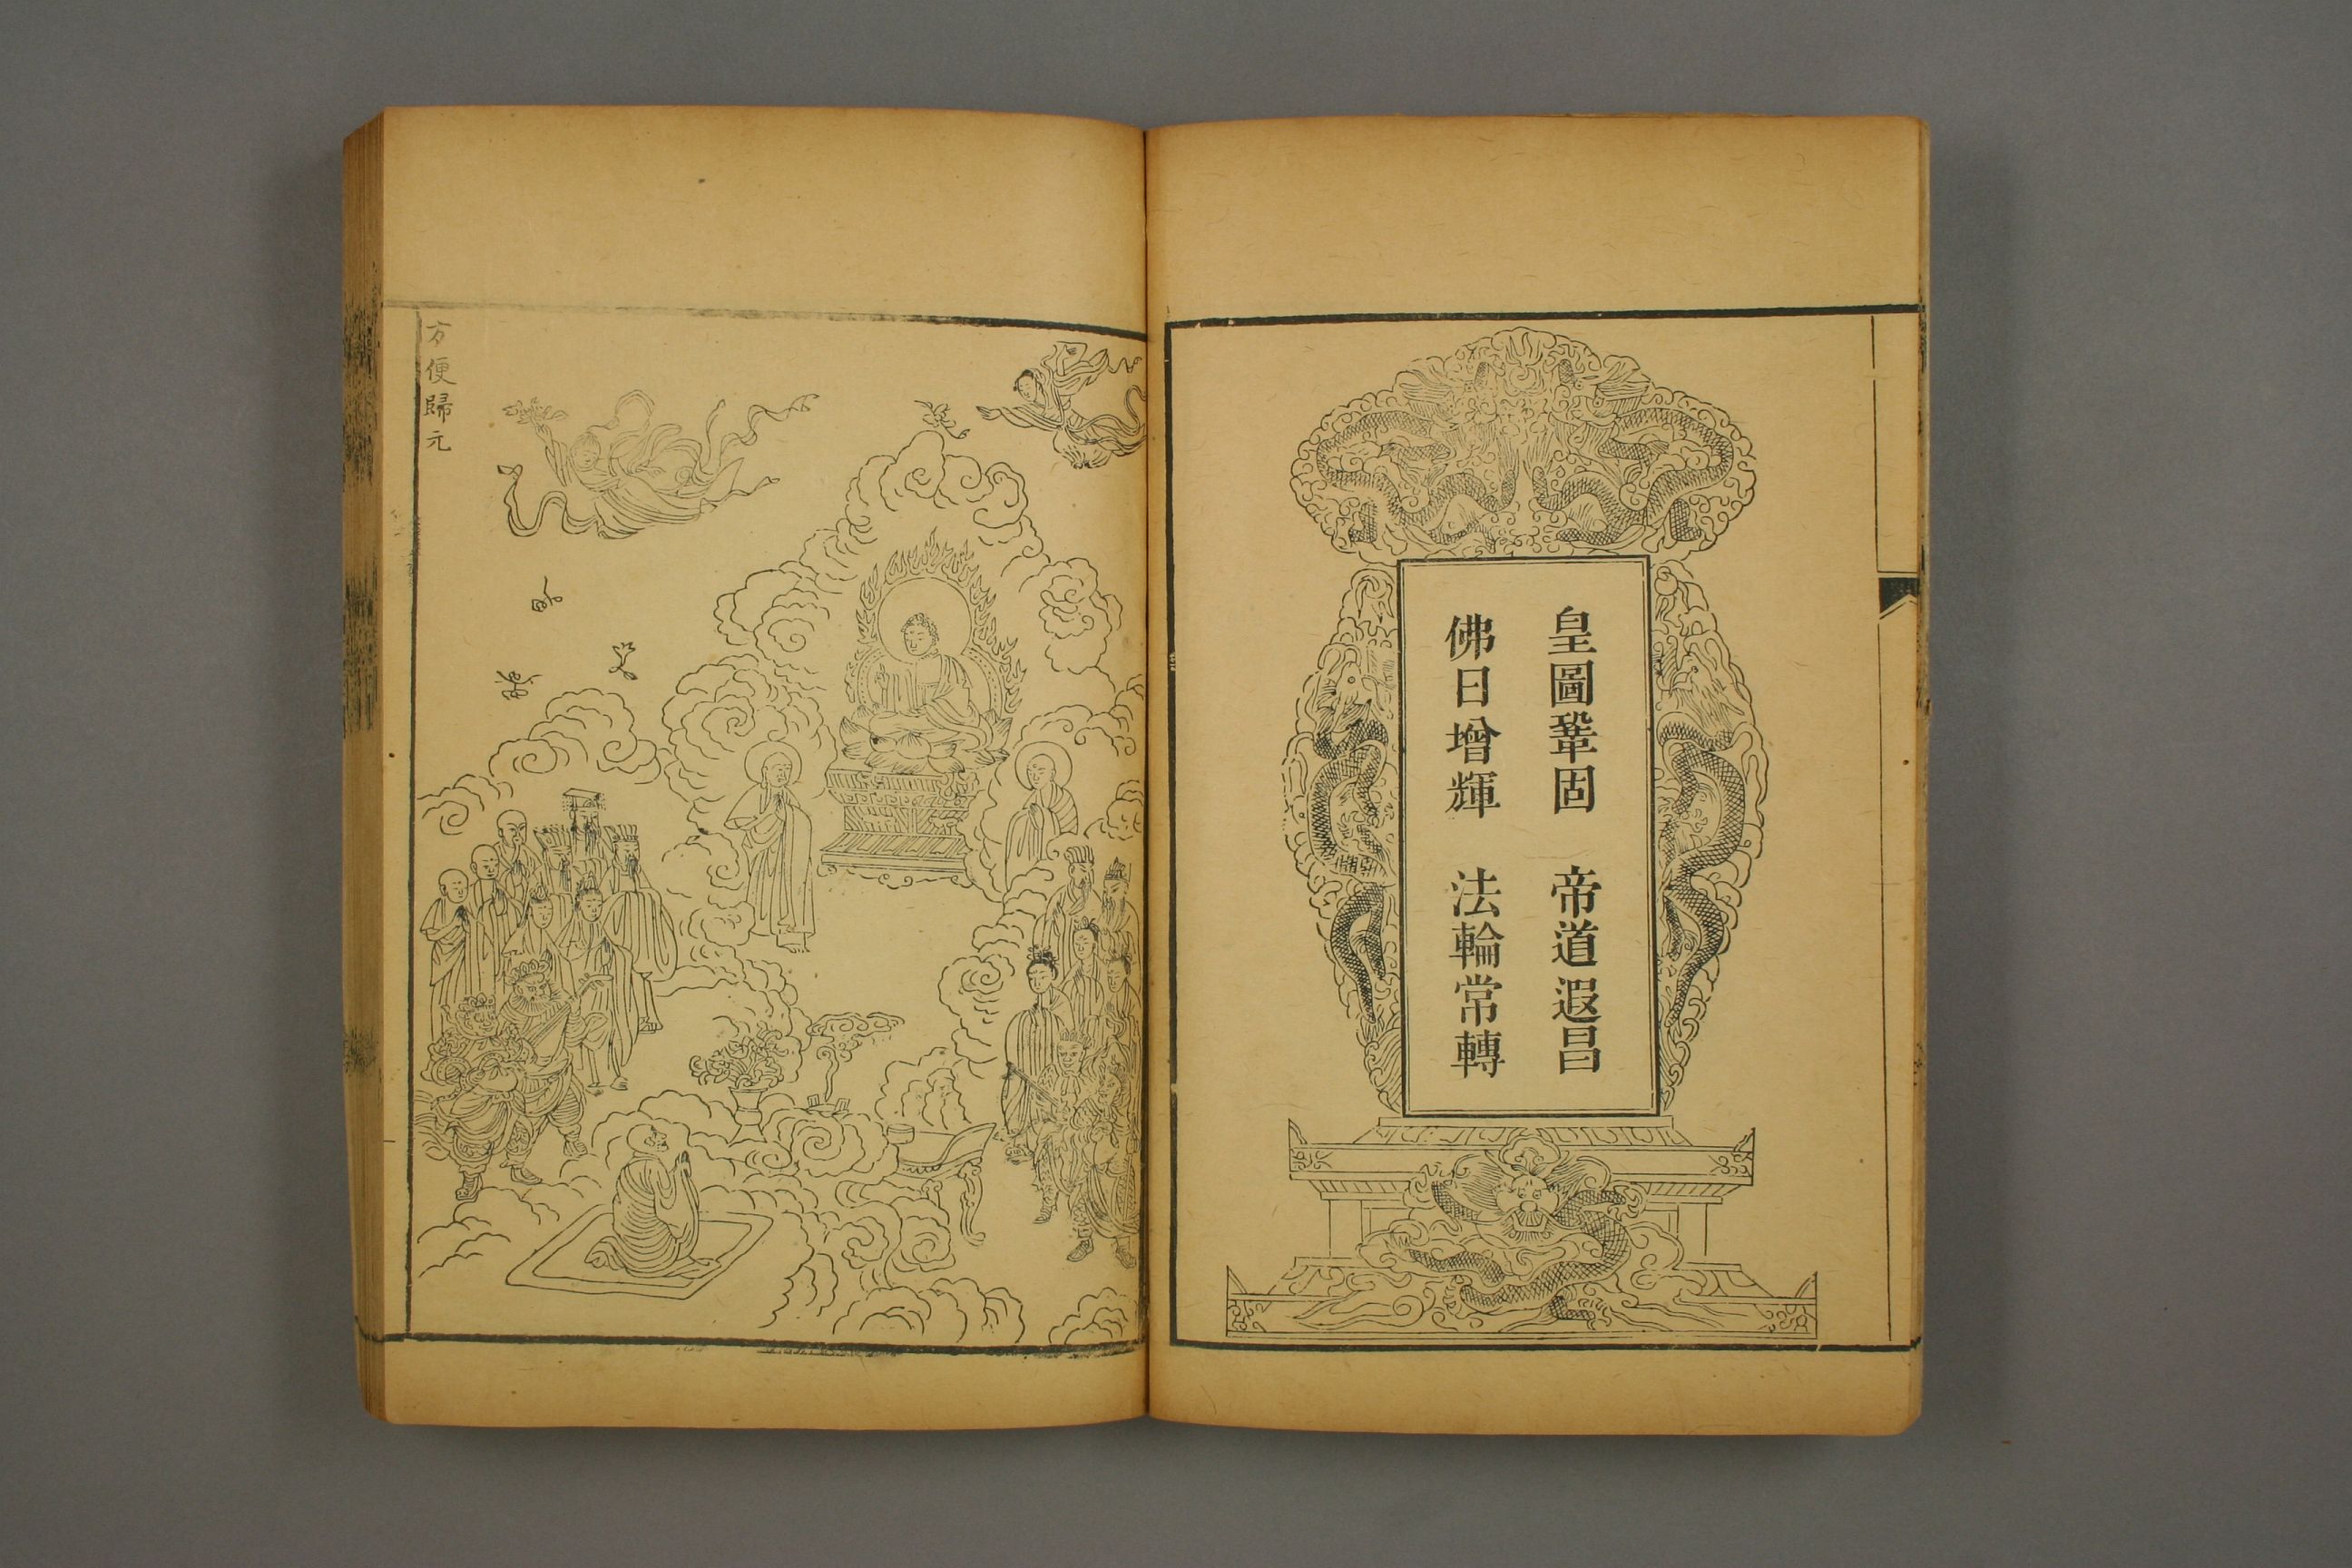 皇圖鞏固　帝道遐昌
佛日增輝　法輪常轉
方便歸元